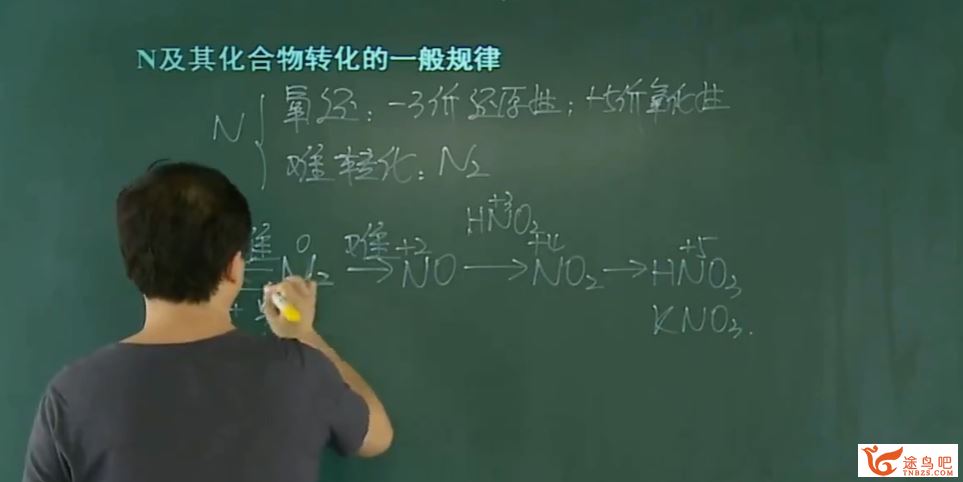 N及其化合物转化的一般规律
N { 氧还：-3价还原性；+5价氧化性
难转化：N₂
HNO₂ +3
难 N₂ 0 难→ NO +2 → NO₂ +4 → HNO₃ +5
KNO₃.
途鸟吧
TNBZS.COM